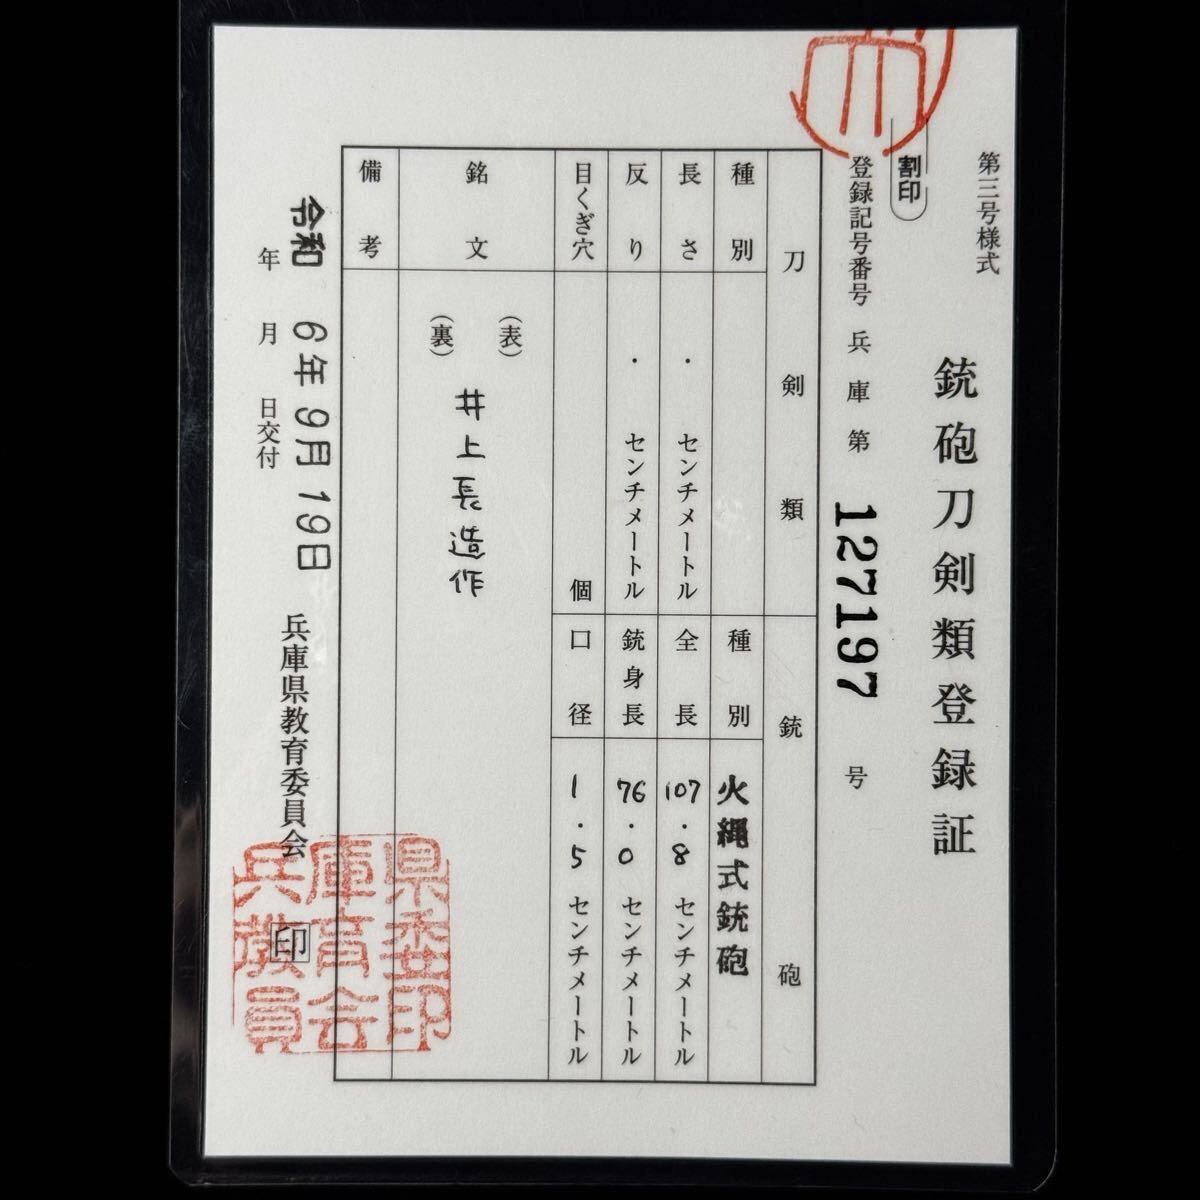 第三号様式
銃砲刀剣類登録証
割印
登録記号番号 兵庫第 127197 号
刀剣類
銃砲
種別
種別
火縄式銃砲
長さ
・ センチメートル
全長
107.8 センチメートル
反り
・ センチメートル
銃身長
76.0 センチメートル
目くぎ穴
個
口径
1.5 センチメートル
銘文
(表)
(裏)
井上長造作
備考
令和 6年9月19日
年 月 日交付
兵庫県教育委員会
印
県委印
庫育会
兵教員